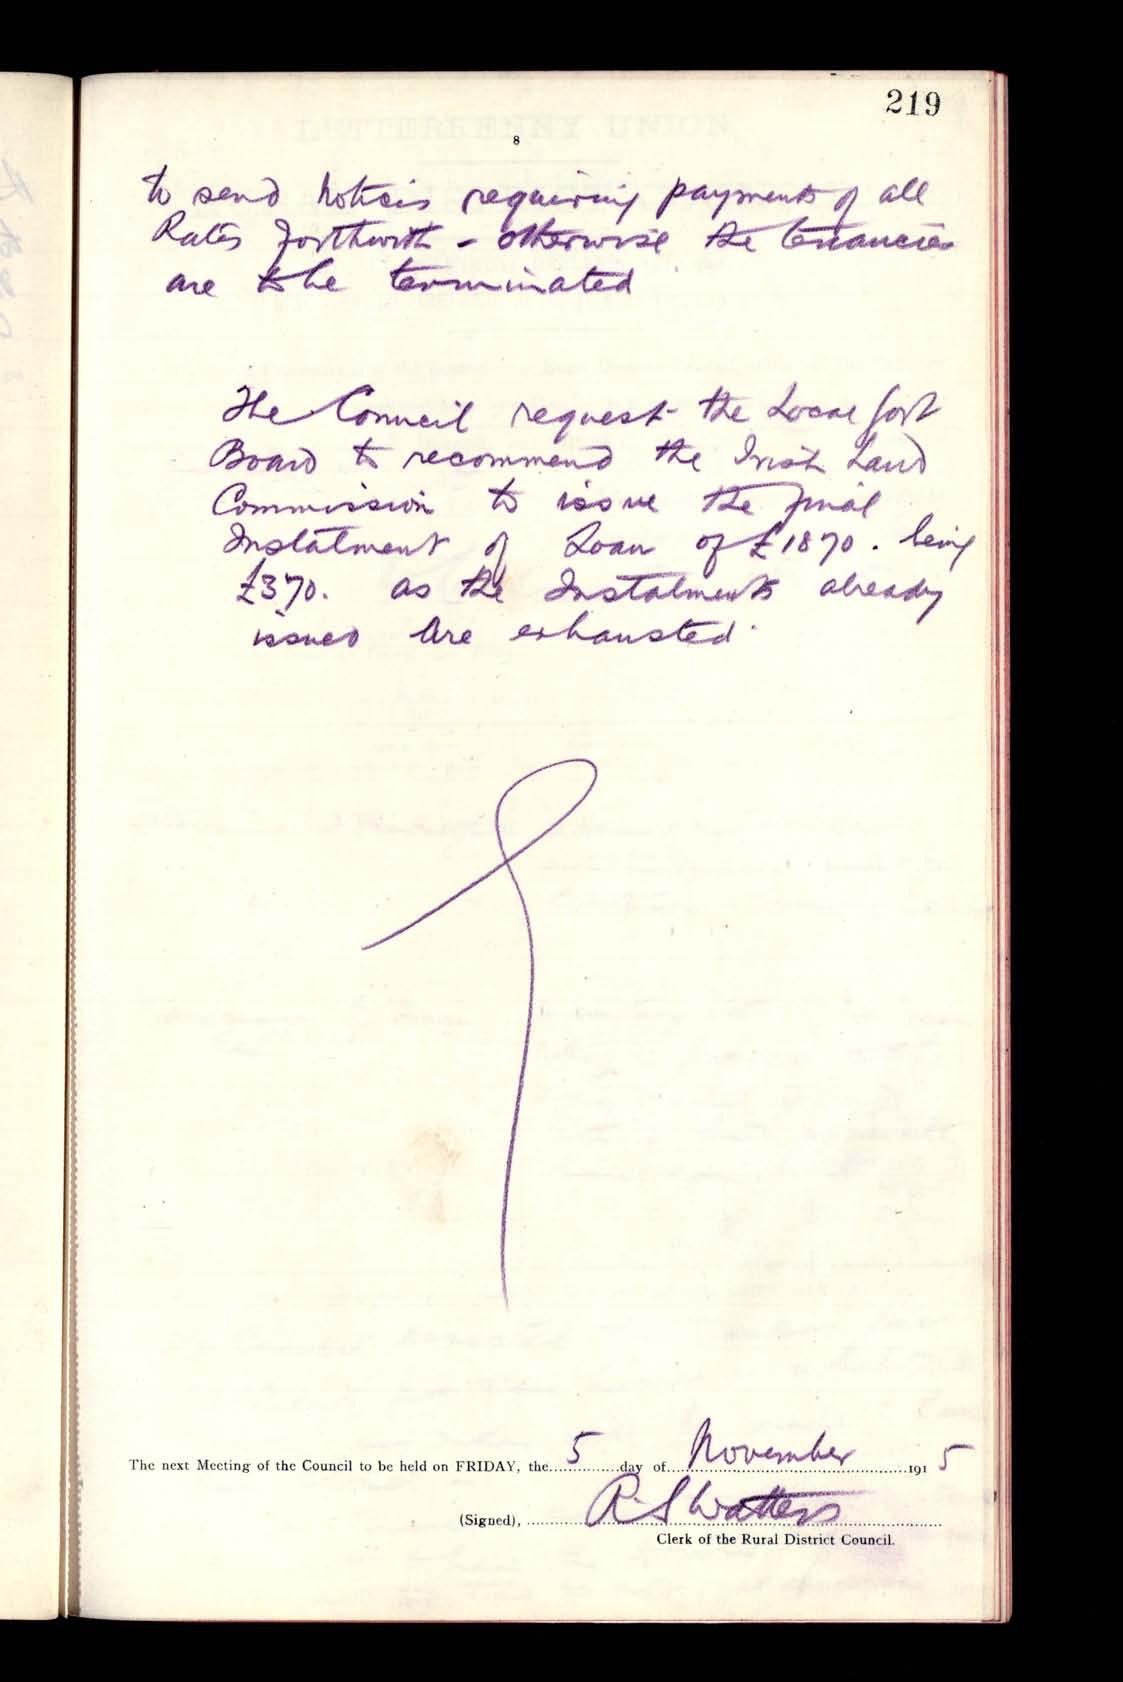 219
8
to send Notices requiring payments of all
Rates forthwith - otherwise the tenancies
are to be terminated
The Council request the Local Govt
Board to recommend the Irish Land
Commission to issue the final
Instalment of Loan of £1870. being
£370. as the Instalments already
issued are exhausted.
The next Meeting of the Council to be held on FRIDAY, the 5 day of November 1915
(Signed), R. S. Watters
Clerk of the Rural District Council.